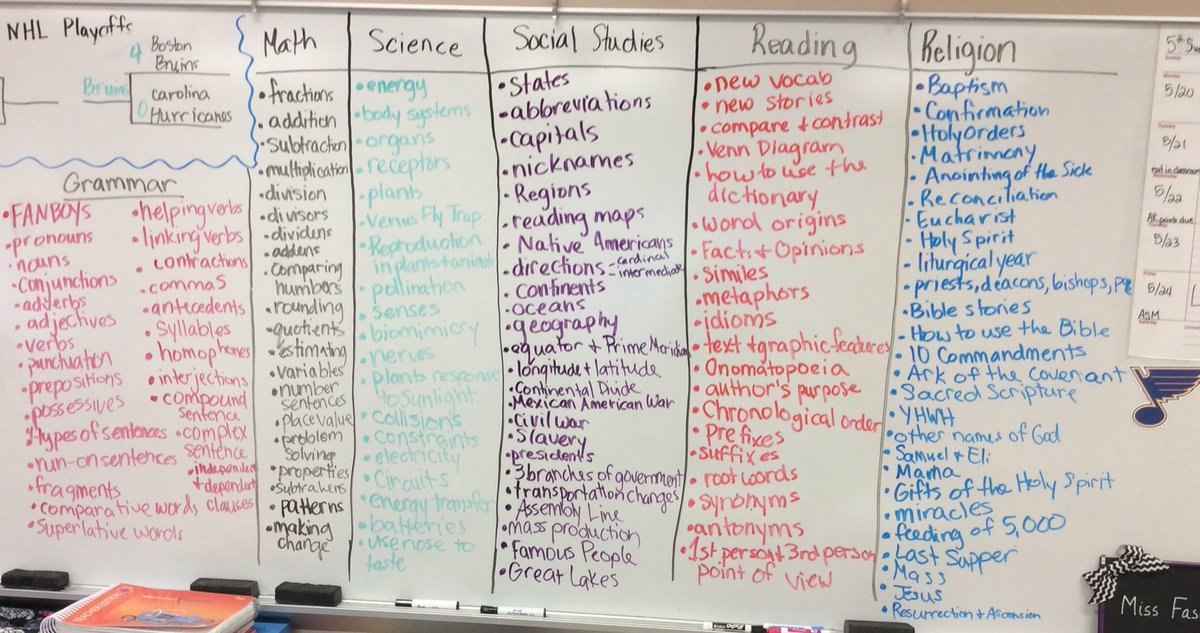 NHL Playoffs
4 Boston
Bruins
Bruins
Carolina
0 Hurricanes
Grammar
• FANBOYS
• pronouns
• nouns
• conjunctions
• adverbs
• adjectives
• verbs
• punctuation
• prepositions
• possessives
• types of sentences
• run-on sentences
• fragments
• comparative words
• Superlative words
• helping verbs
• linking verbs
• contractions
• commas
• antecedents
• Syllables
• homophones
• interjections
• compound
sentence
• complex
sentence
• independent
+ dependent
clauses
Math
• fractions
• addition
• Subtraction
• multiplication
• division
• divisors
• dividens
• addens
• Comparing
numbers
• rounding
• quotients
• estimating
• variables
• number
sentences
• place value
• problem
solving
• properties
• subtrahers
• patterns
• making
change
Science
• energy
• body systems
• organs
• receptors
• plants
• Venus Fly Trap
• Reproduction
in plants + animals
• pollination
• senses
• biomimicry
• nerves
• plants response
to Sunlight
• Collisions
• constraints
• electricity
• Circuits
• energy transfer
• batteries
• use nose to
taste
Social Studies
• States
• abbreviations
• capitals
• nicknames
• Regions
• reading maps
• Native Americans
• directions - cardinal
intermediate
• Continents
• oceans
• geography
• equator + Prime Meridian
• longitude + latitude
• Continental Divide
• Mexican American War
• Civil War
• Slavery
• presidents
• 3 branches of government
• transportation changes
• Assembly Line
• mass production
• Famous People
• Great Lakes
Reading
• new vocab
• new stories
• compare + contrast
• Venn Diagram
• how to use the
dictionary
• word origins
• Facts + Opinions
• Similes
• metaphors
• idioms
• text + graphic features
• Onomatopoeia
• author's purpose
• Chronological order
• Prefixes
• suffixes
• root words
• Synonyms
• antonyms
• 1st person + 3rd person
point of view
Religion
• Baptism
• Confirmation
• Holy Orders
• Matrimony
• Anointing of the Sick
• Reconciliation
• Eucharist
• Holy Spirit
• liturgical year
• priests, deacons, bishops,
• Bible stories
• How to use the Bible
• 10 Commandments
• Ark of the Covenant
• Sacred Scripture
• YHWH
• other names of God
• Samuel + Eli
• Mama
• Gifts of the Holy Spirit
• miracles
• feeding of 5,000
• Last Supper
• Mass
• Jesus
• Resurrection + Ascension
Sunday
Monday
5/20
Tuesday
5/21
Wednesday
5/22
Thursday
5/23
Friday
5/24
ASM
Saturday
Miss Fas